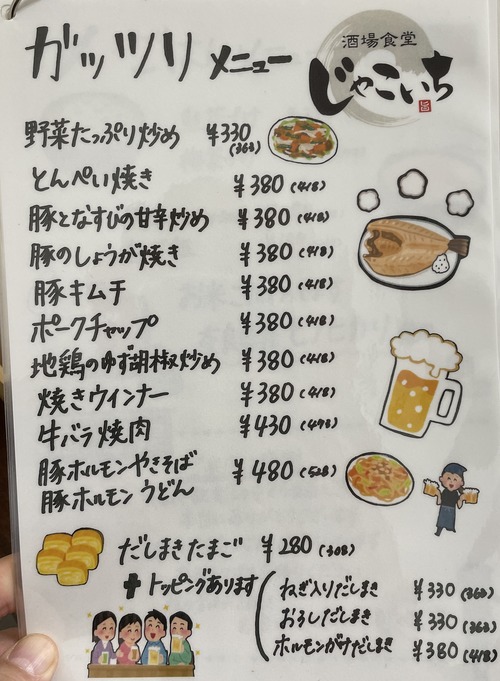 ガッツリ メニュー
酒場食堂
じゃこいち
旨
野菜たっぷり炒め ¥330
(363)
とんぺい焼き ¥380 (418)
豚となすびの甘辛炒め ¥380 (418)
豚のしょうが焼き ¥380 (418)
豚キムチ ¥380 (418)
ポークチャップ ¥380 (418)
地鶏のゆず胡椒炒め ¥380 (418)
焼きウインナー ¥380 (418)
牛バラ焼肉 ¥430 (473)
豚ホルモンやきそば ¥480 (528)
豚ホルモンうどん
だしまきたまご ¥280 (308)
+トッピングあります
ねぎ入りだしまき ¥330 (363)
おろしだしまき ¥330 (363)
ホルモンがけだしまき ¥380 (418)